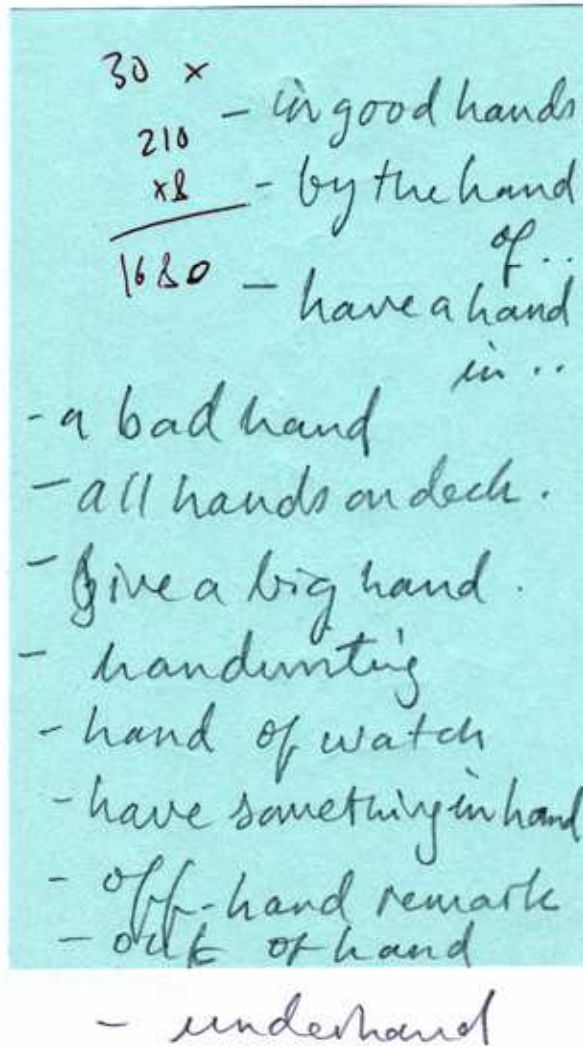 30 x
210 - in good hands
x8 - by the hand
of ..
1680 - have a hand
in ..
- a bad hand
- all hands on deck.
- give a big hand.
- handwriting
- hand of watch
- have something in hand
- off-hand remark
- out of hand
- underhand